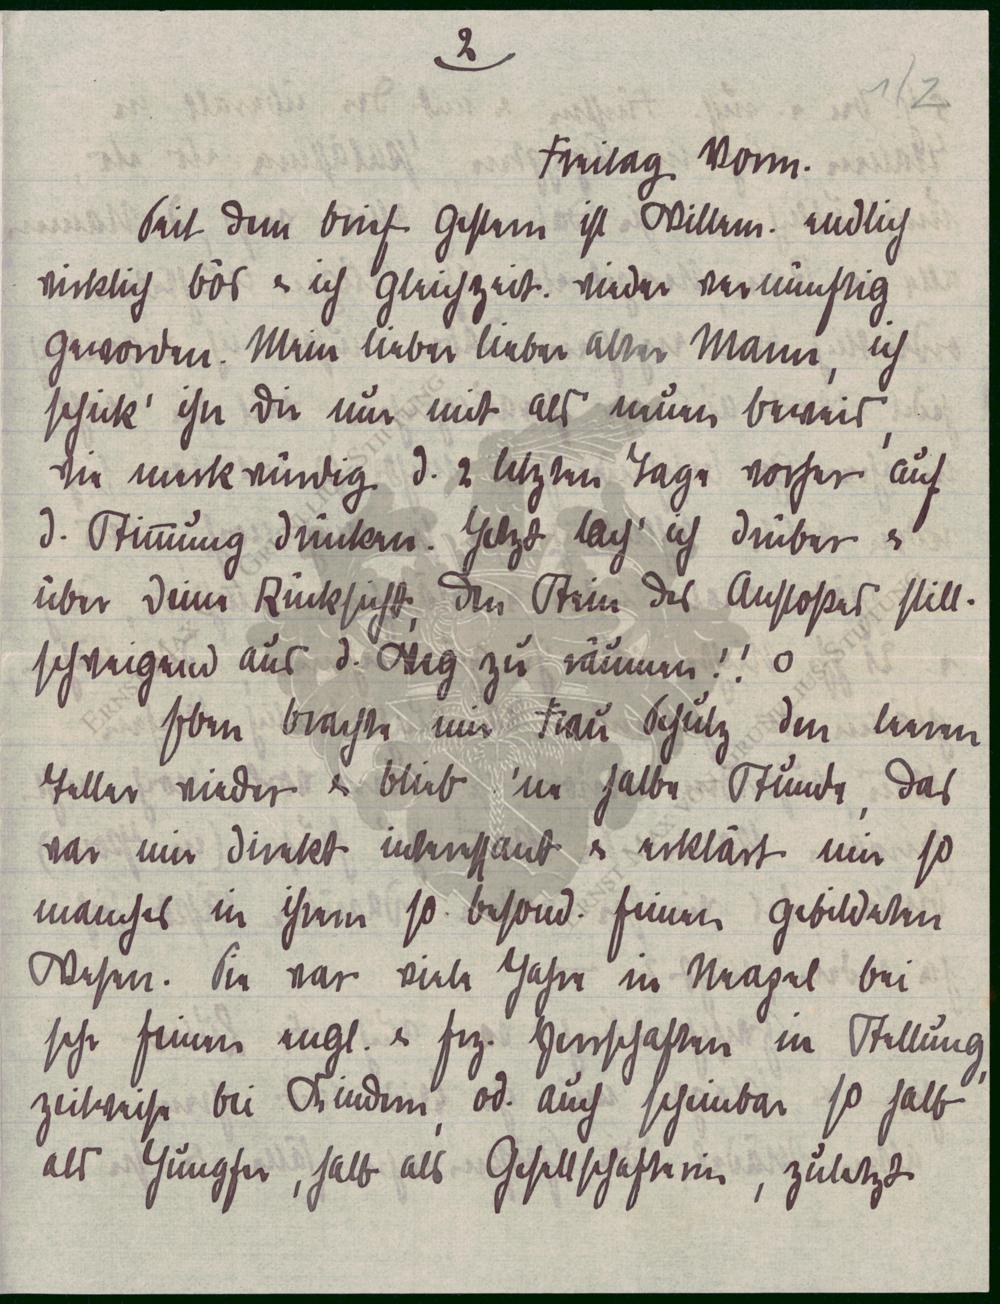 2
1/2
Freitag Vorm.
Seit dem brief gestern ist Willem. endlich
wirklich bös & ich gleichzeit. wieder vernünftig
geworden. Mein lieber lieber alter Mann, ich
schick' ihn dir nur mit als neuen beweis,
wie merkwürdig d. 2 letzten Tage vorher auf
d. Stim̄ung drücken. Jetzt lach' ich drüber &
über deine Rücksicht, den Stein des Anstoßes still-
schweigend aus d. Weg zu räumen!! o
Eben brachte mir Frau Schulz den leeren
Teller wieder & blieb 'ne halbe Stunde, das
war mir direkt interessant & erklärt mir so
manches in ihrem so besond. feinen gebildeten
Wesen. Sie war viele Jahre in Neapel bei
sehr feinen engl. & frz. Herrschaften in Stellung,
zeitweise bei Kindern, od. auch scheinbar so halb
als Jungfer, halb als Gesellschafterin, zuletzt
ERNST MAX GROTHIUS STIFTUNG